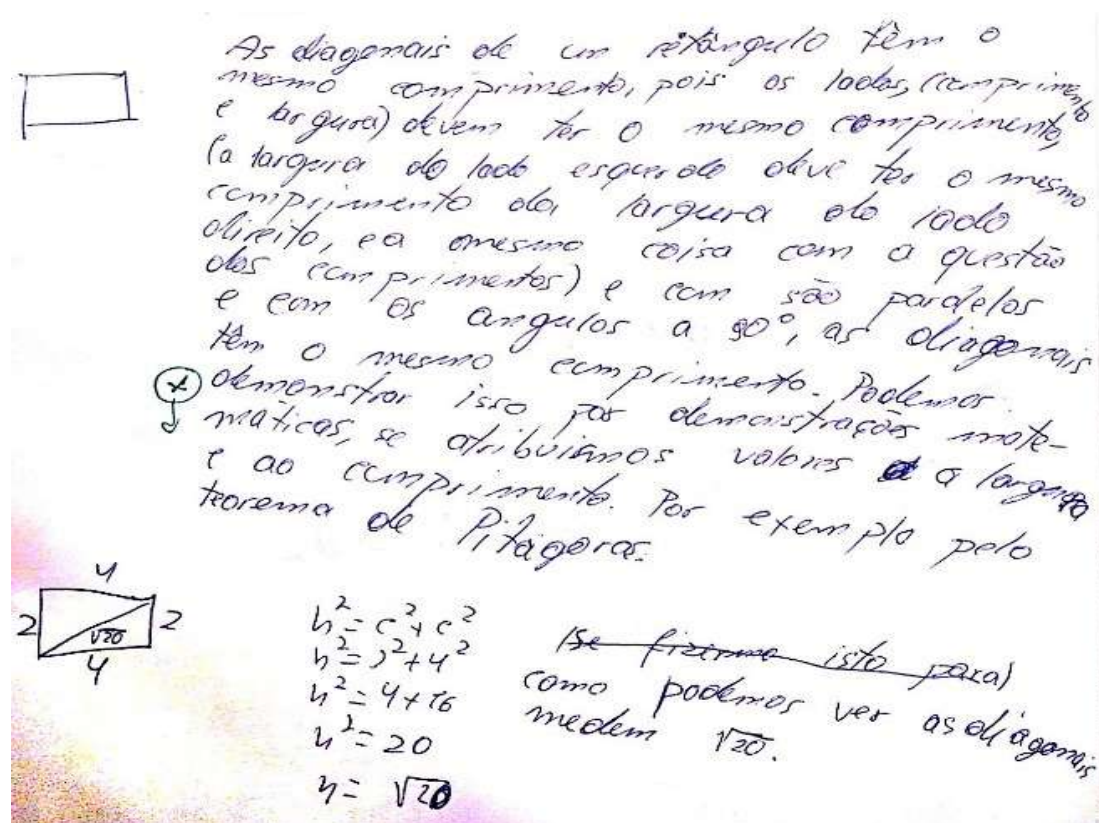 As diagonais de um retângulo têm o
mesmo comprimento, pois os lados, (comprimento
e largura) devem ter o mesmo comprimento,
(a largura do lado esquerdo deve ter o mesmo
comprimento da largura do lado
direito, e a mesma coisa com a questão
dos comprimentos) e com são paralelos
e com os angulos a 90°, as diagonais
têm o mesmo comprimento. Podemos
demonstrar isso por demonstrações mate-
máticas, se atribuismos valores a largura
e ao comprimento. Por exemplo pelo
teorema de Pitágoras.
4
2 √20 2
4
h² = c² + c²
h² = 2² + 4²
h² = 4 + 16
h² = 20
h = √20
(Se fizermo isto para)
como podemos ver as diagonais
medem √20.